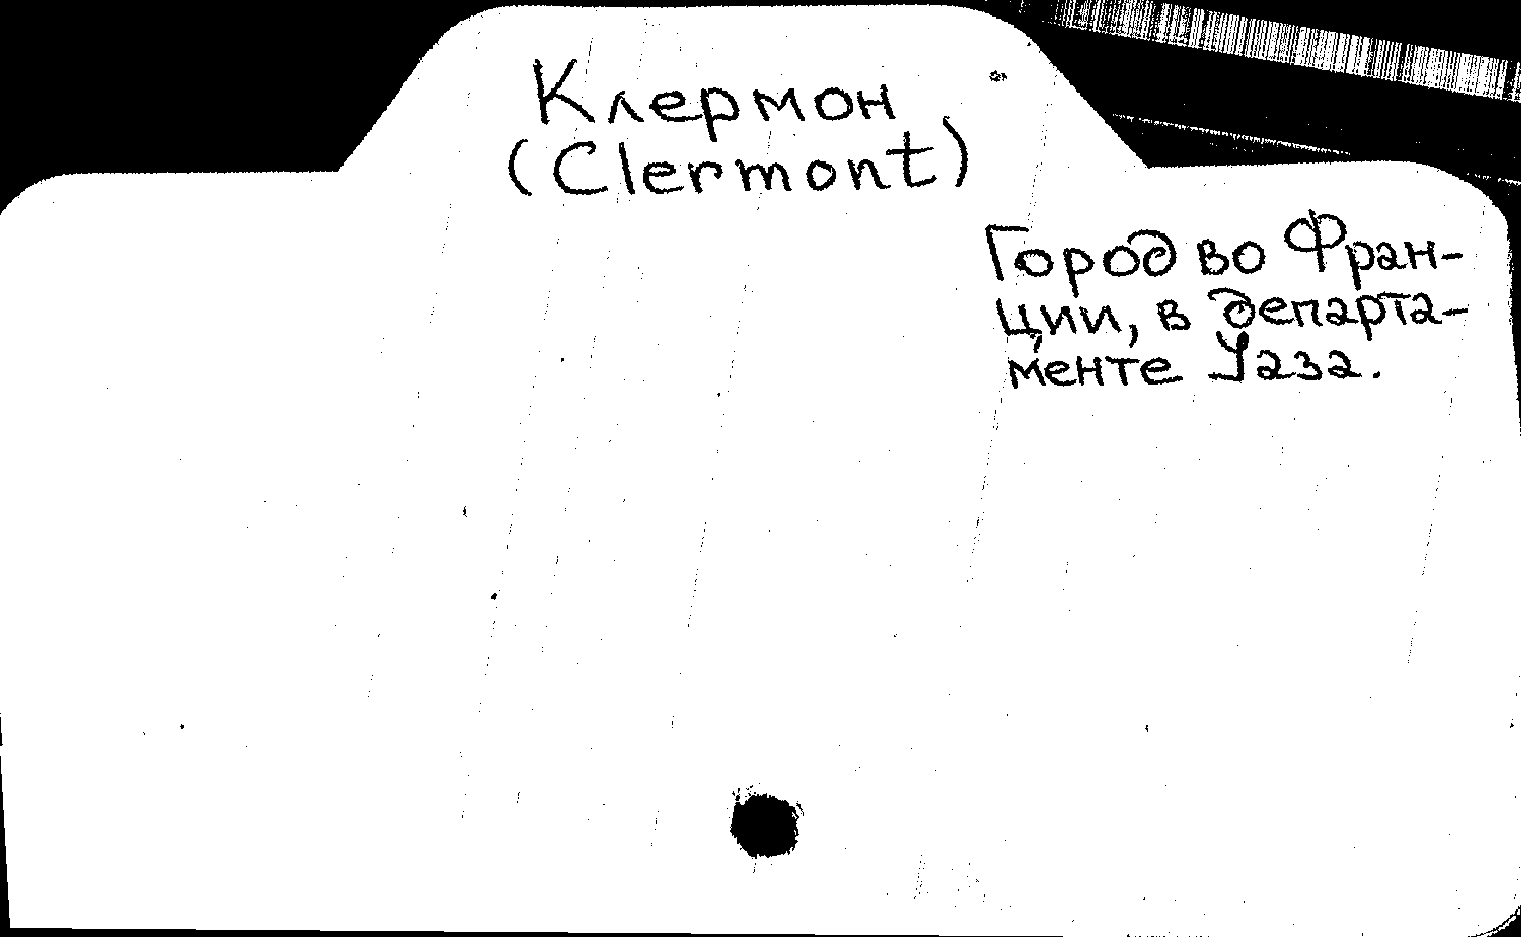 Клермон
(Clermont)
Город во Фран-
ции, в департа-
менте Уаза.